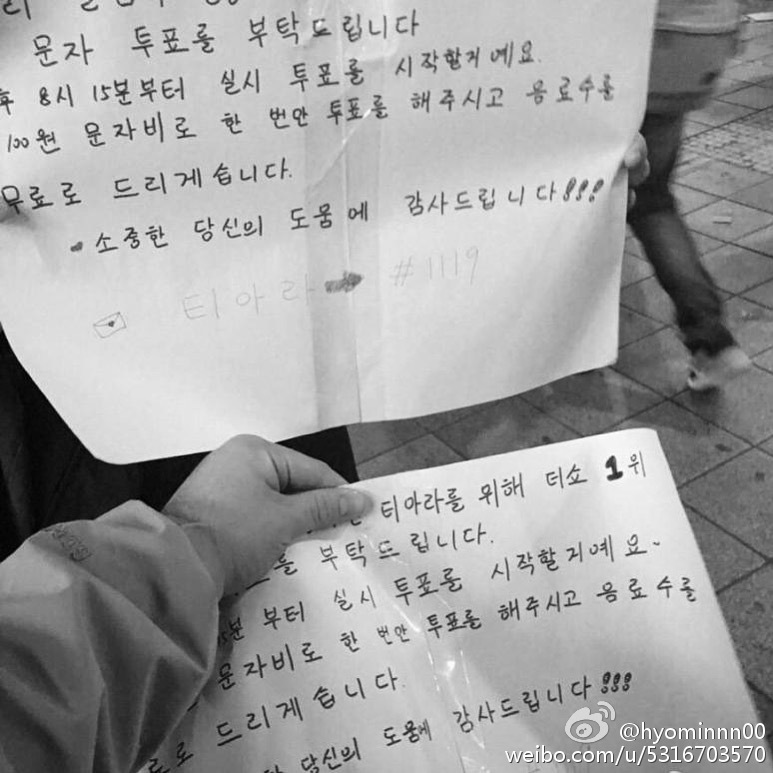 문자 투표를 부탁드립니다
후 8시 15분부터 실시 투표를 시작할거예요.
100원 문자비로 한 번안 투표를 해주시고 음료수를
무료로 드리게습니다.
소중한 당신의 도움에 감사드립니다!!!
티아라 #1119
티아라를 위해 더쇼 1위
를 부탁드립니다.
분부터 실시 투표를 시작할거예요~
문자비로 한 번안 투표를 해주시고 음료수를
로 드리게습니다.
당신의 도움에 감사드립니다!!!
@hyominnn00
weibo.com/u/5316703570